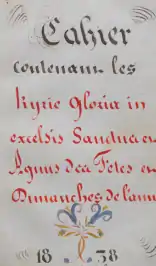 Cahier
contenant les
kyrie Gloria in
excelsis Sanctus et
Agnus des Fetes et
Dimanches de l'ann
18 38